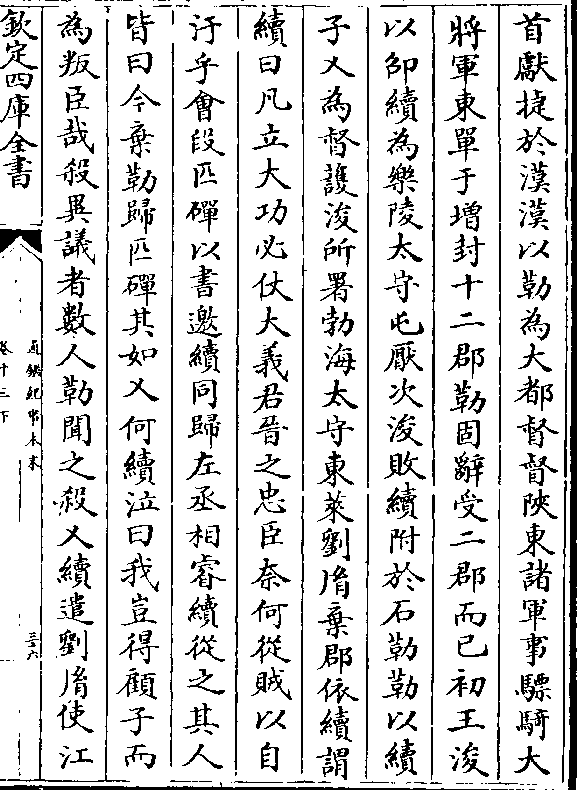 首獻捷於漢漢以勒為大都督督陜東諸軍事驃騎大
將軍東單于增封十二郡勒固辭受二郡而已初王浚
以邵續為樂陵太守屯厭次浚敗續附於石勒勒以續
子乂為督護浚所署勃海太守東萊劉𦙍棄郡依續謂
續曰凡立大功必仗大義君晉之忠臣奈何從賊以自
汙乎會段匹磾以書邀續同歸左丞相睿續從之其人
皆曰今棄勒歸匹磾其如乂何續泣曰我豈得顧子而
為叛臣哉殺異議者數人勒聞之殺乂續遣劉𦙍使江
欽定四庫全書
通鑑紀事本末
卷十三下
三六